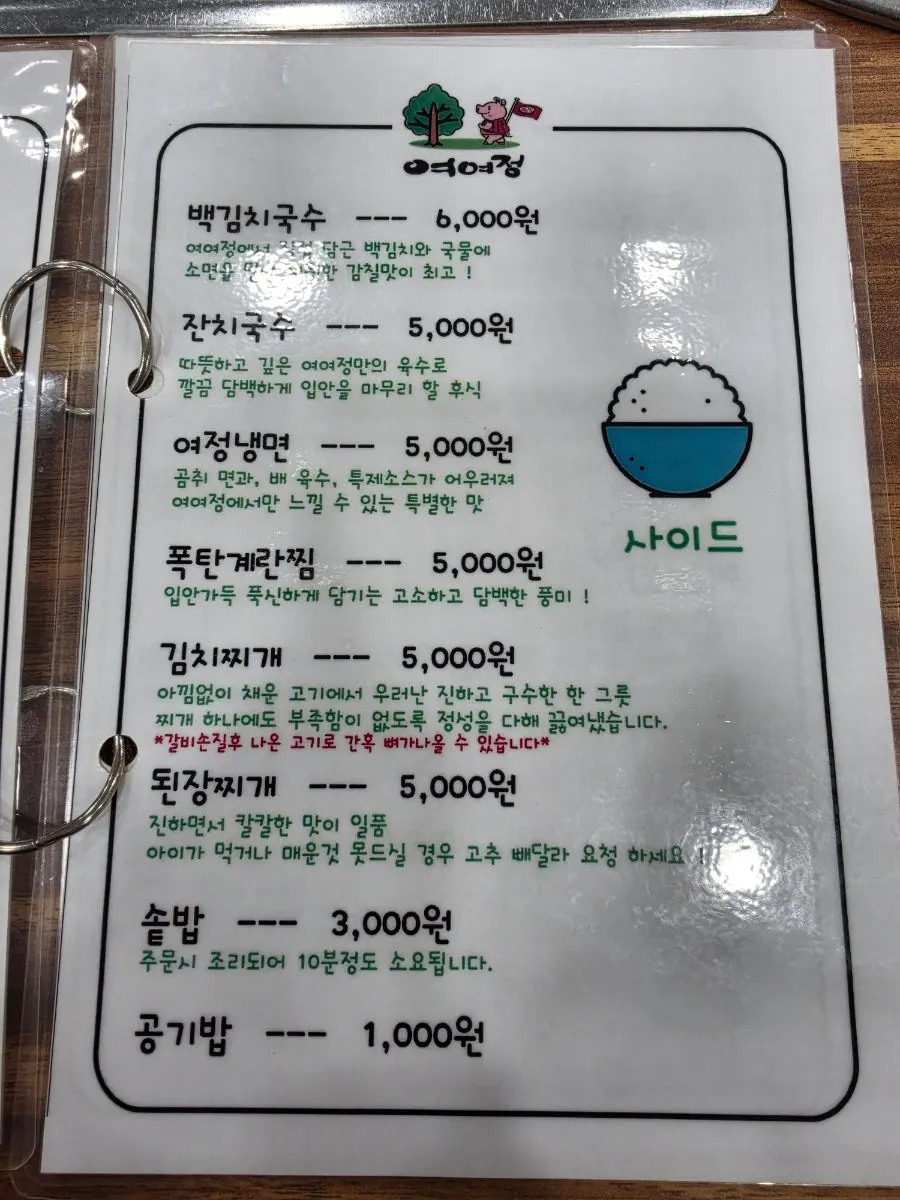 여여정
백김치국수 --- 6,000원
여여정에서 직접 담근 백김치와 국물에
소면을 감칠맛이 최고 !
잔치국수 --- 5,000원
따뜻하고 깊은 여여정만의 육수로
깔끔 담백하게 입안을 마무리 할 후식
여정냉면 --- 5,000원
곰취 면과, 배 육수, 특제소스가 어우러져
여여정에서만 느낄 수 있는 특별한 맛
사이드
폭탄계란찜 --- 5,000원
입안가득 푹신하게 담기는 고소하고 담백한 풍미 !
김치찌개 --- 5,000원
아낌없이 채운 고기에서 우러난 진하고 구수한 한 그릇
찌개 하나에도 부족함이 없도록 정성을 다해 끓여냈습니다.
*갈비손질후 나온 고기로 간혹 뼈가나올 수 있습니다*
된장찌개 --- 5,000원
진하면서 칼칼한 맛이 일품
아이가 먹거나 매운것 못드실 경우 고추 빼달라 요청 하세요 !
솥밥 --- 3,000원
주문시 조리되어 10분정도 소요됩니다.
공기밥 --- 1,000원